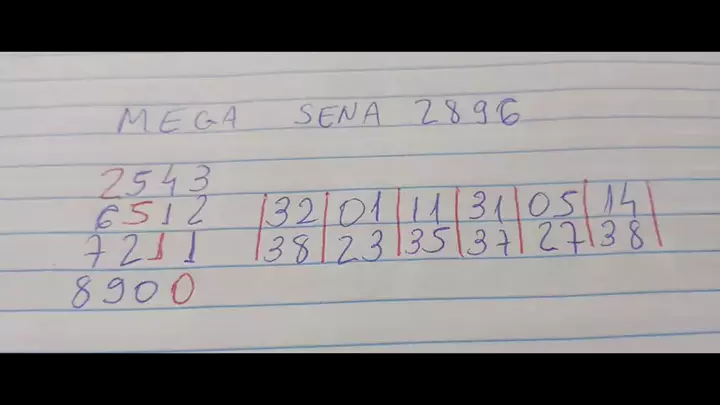 MEGA SENA 2896
2543
6512 |32|01|11|31|05|14|
7211 |38|23|35|37|27|38|
8900